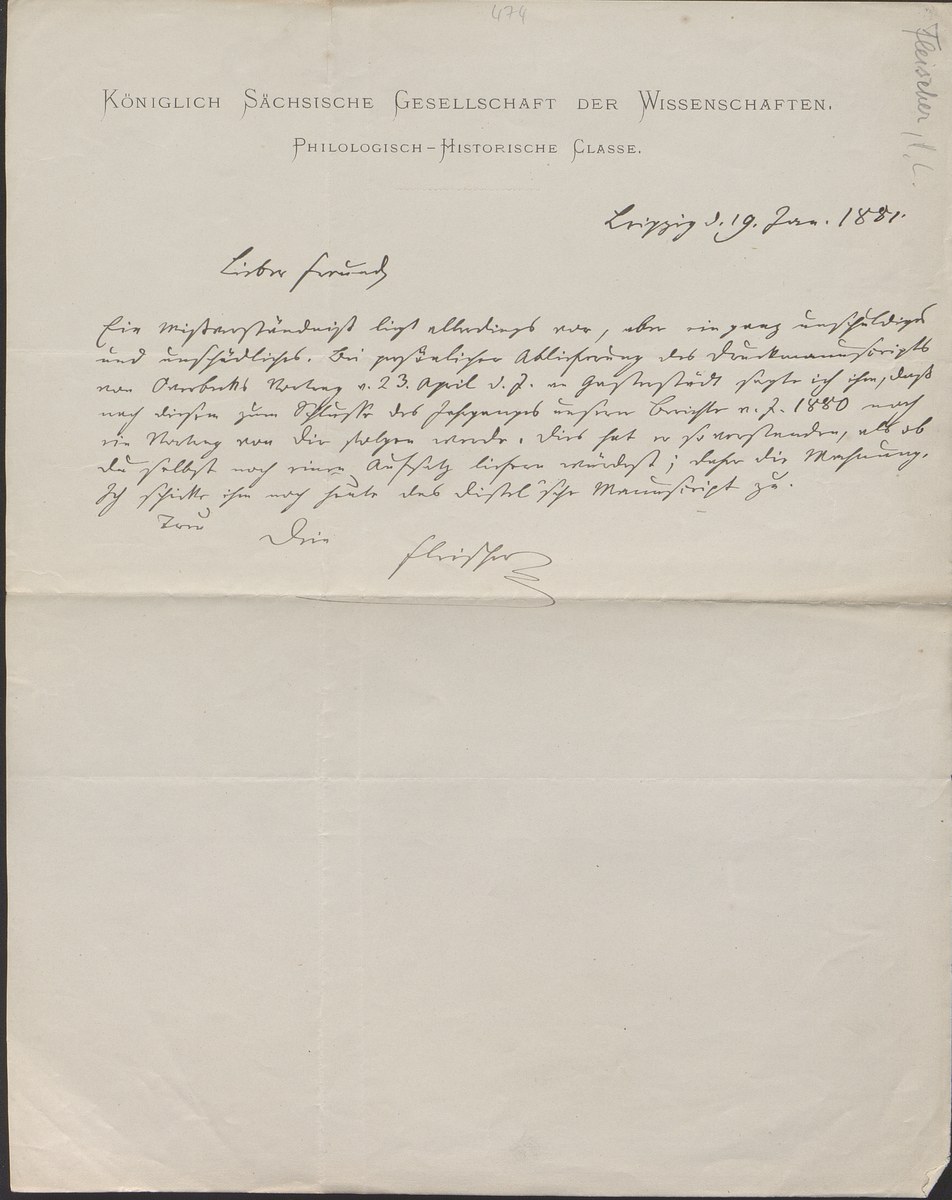 474
Fleischer, H. L.
KÖNIGLICH SÄCHSISCHE GESELLSCHAFT DER WISSENSCHAFTEN.
PHILOLOGISCH-HISTORISCHE CLASSE.
Leipzig d. 19. Jan. 1881.
Lieber Freund
Ein Mißverständniß liegt allerdings vor, aber ein ganz unschuldiges
und unschädliches. Bei persönlicher Ablieferung des Druckmanuscripts
von Overbecks Vortrag v. 23. April d. J. sagte ich ihm, daß
nach diesem zum Schlusse des Jahrganges unserer Berichte v. J. 1880 noch
ein Vortrag von Dir folgen werde. Dies hat er so verstanden, als ob
Du selbst noch einen Aufsatz liefern würdest; daher die Mahnung.
Ich schicke ihm noch heute das Distel'sche Manuscript zu.
Treu
Dein Fleischer